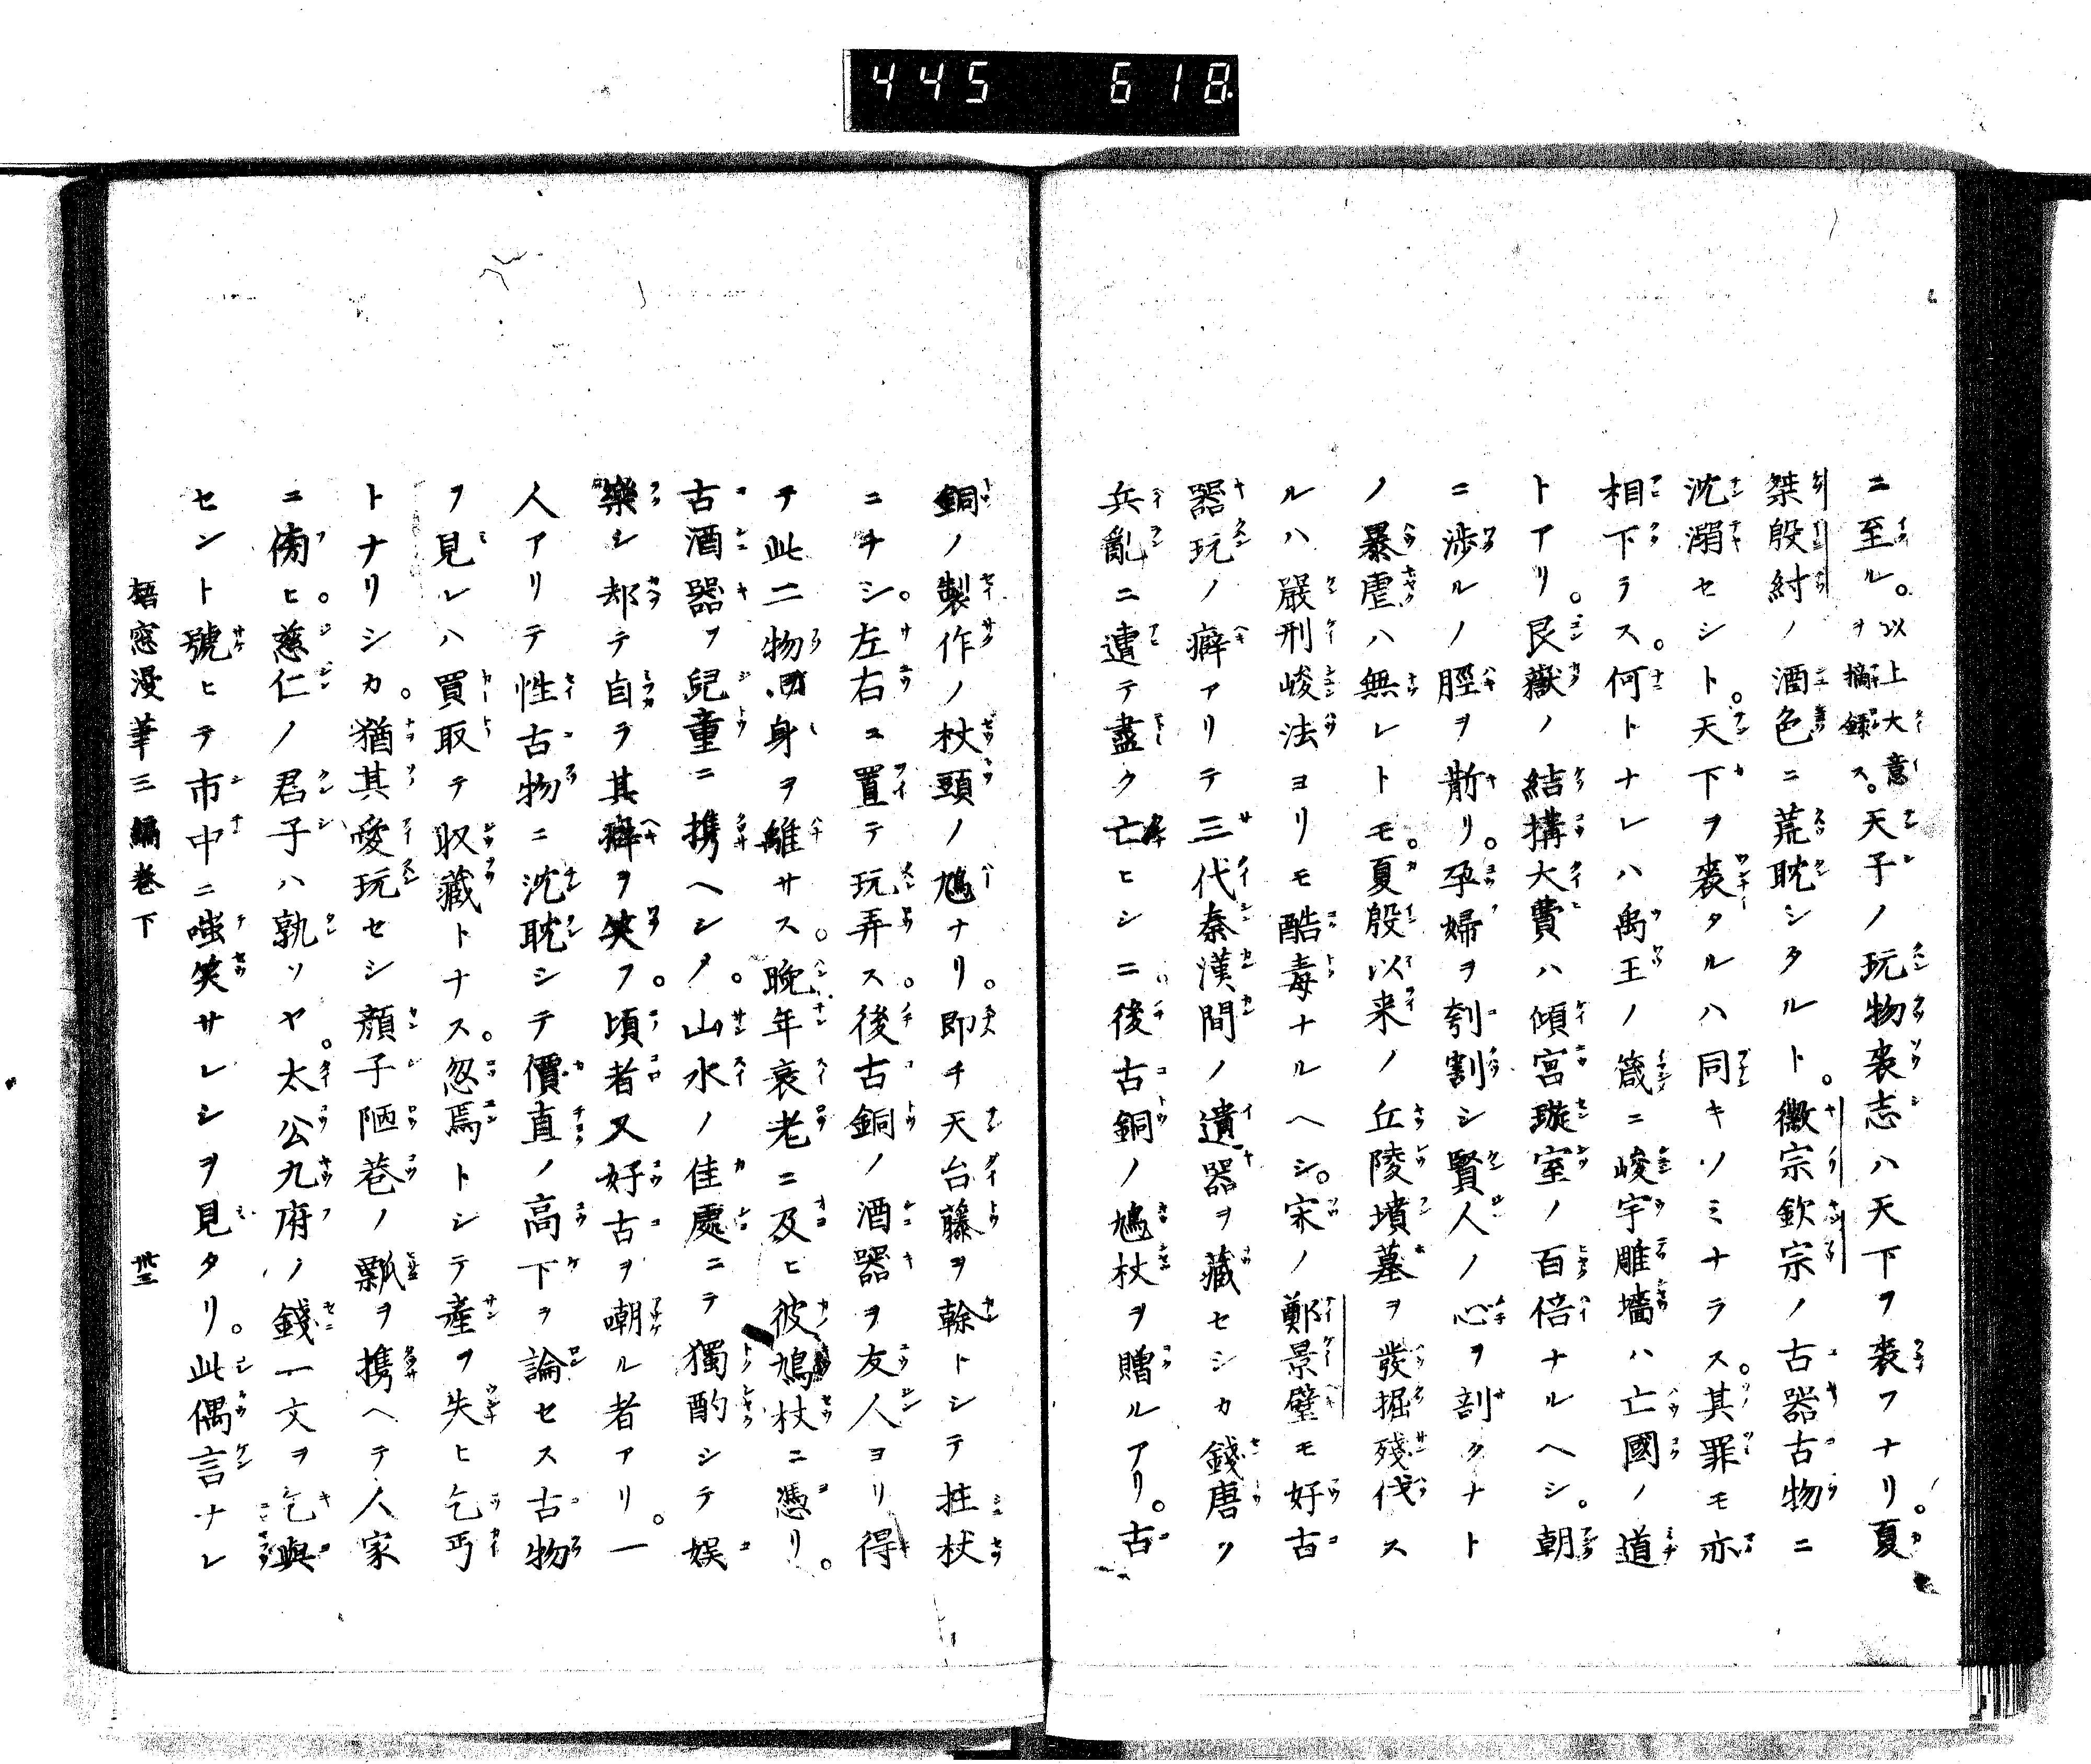 445 618
ニ至ル。以上大意ヲ摘録ス。天子ノ玩物喪志ハ天下ヲ喪フナリ。夏
桀殷紂ノ酒色ニ荒耽シタルト。徽宗欽宗ノ古器古物ニ
沈溺セシト。天下ヲ喪タルハ同キソミナラス。其罪モ亦
相下ラス。何トナレハ禹王ノ箴ニ峻宇雕墻ハ亡國ノ道
トアリ。艮嶽ノ結搆大費ハ傾宮璇室ノ百倍ナルヘシ。朝
ニ渉ルノ脛ヲ斮リ。孕婦ヲ刳割シ賢人ノ心ヲ剖クナト
ノ暴虐ハ無レトモ。夏殷以来ノ丘陵墳墓ヲ發掘殘伐ス
ルハ嚴刑峻法ヨリモ酷毒ナルヘシ。宋ノ鄭景璧モ好古
器玩ノ癖アリテ三代秦漢間ノ遺器ヲ藏セシカ錢唐ツ
兵亂ニ遭テ盡ク亡ヒシニ。後古銅ノ鳩杖ヲ贈ルアリ。古
銅ノ製作ノ杖頭ノ鳩ナリ。即チ天台藤ヲ幹トシテ拄杖
ニナシ。左右ニ置テ玩弄ス。後古銅ノ酒器ヲ友人ヨリ得
テ此二物身ヲ離サス。晩年衰老ニ及ヒ彼鳩杖ニ憑リ。
古酒器ヲ兒童ニ携ヘシメ。山水ノ佳處ニテ獨酌シテ娯
樂シ却テ自ラ其癖ヲ笑フ。頃者又好古ヲ嘲ル者アリ。一
人アリテ性古物ニ沈耽シテ價直ノ高下ヲ論セス古物
ヲ見レハ買取テ収藏トナス。忽焉トシテ産ヲ失ヒ乞丐
トナリシカ。猶其愛玩セシ顔子陋巷ノ瓢ヲ携ヘテ人家
ニ傍ヒ。慈仁ノ君子ハ孰ソヤ。太公九府ノ錢一文ヲ乞與
セント號ヒテ市中ニ嗤笑サレシヲ見タリ。此偶言ナレ
梧窓漫筆三編巻下 卅三